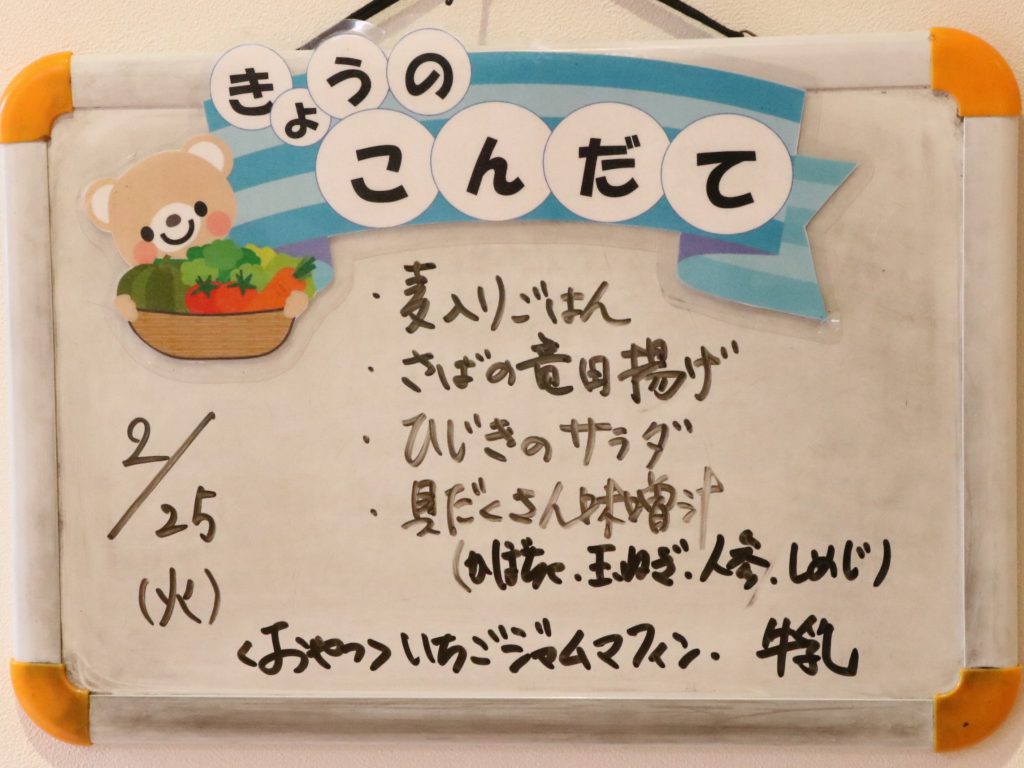 きょうの
こんだて
・麦入りごはん
・さばの竜田揚げ
・ひじきのサラダ
・具だくさん味噌汁
(かぼちゃ.玉ねぎ.人参.しめじ)
2/25
(火)
<おやつ>いちごジャムマフィン. 牛乳